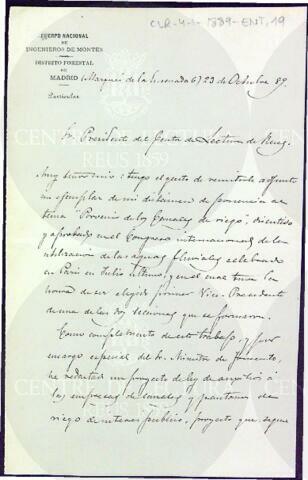 CLR-4-1-1889-ENT, 19
CUERPO NACIONAL
DE
INGENIEROS DE MONTES
DISTRITO FORESTAL
DE
MADRID
Particular
(Marqués de la Ensenada 6) 23 de Octubre 89.
Sr. Presidente del Centro de Lectura de Reus.
Muy Señor mio: tengo el gusto de remitirle adjunto
un ejemplar de mi dictamen de ponencia al
tema "Porvenir de los Canales de riego", discutido
y aprobado en el Congreso internacional de la
utilización de las aguas fluviales celebrado
en Paris en Julio último, y en el cual tuve la
honra de ser elegido primer Vice-Presidente
de una de las dos secciones que se formaron.
Como complemento de este trabajo, y por
encargo especial del Sr. Ministro de Fomento,
he redactado un proyecto de ley de auxilios á
las empresas de canales y pantanos de
riego de interés público, proyecto que sigue
CENTRE DE LECTURA
REUS 1859